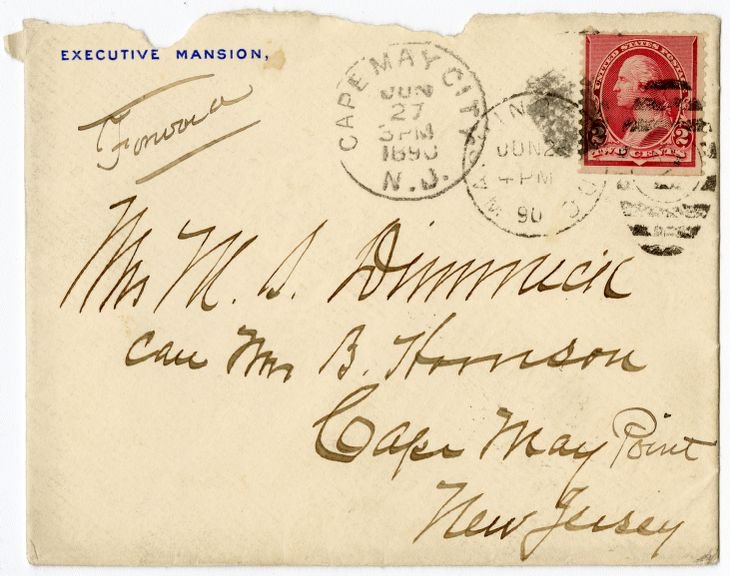 EXECUTIVE MANSION,
Forward
CAPE MAY CITY
JUN
27
3PM
1890
N.J.
WASHINGTON
JUN 2
4 PM
90
D.C.
UNITED STATES POSTAGE
2 2
TWO CENTS
Mrs M. S. Dimmick
care Mrs B. Harrison
Cape May Point
New Jersey